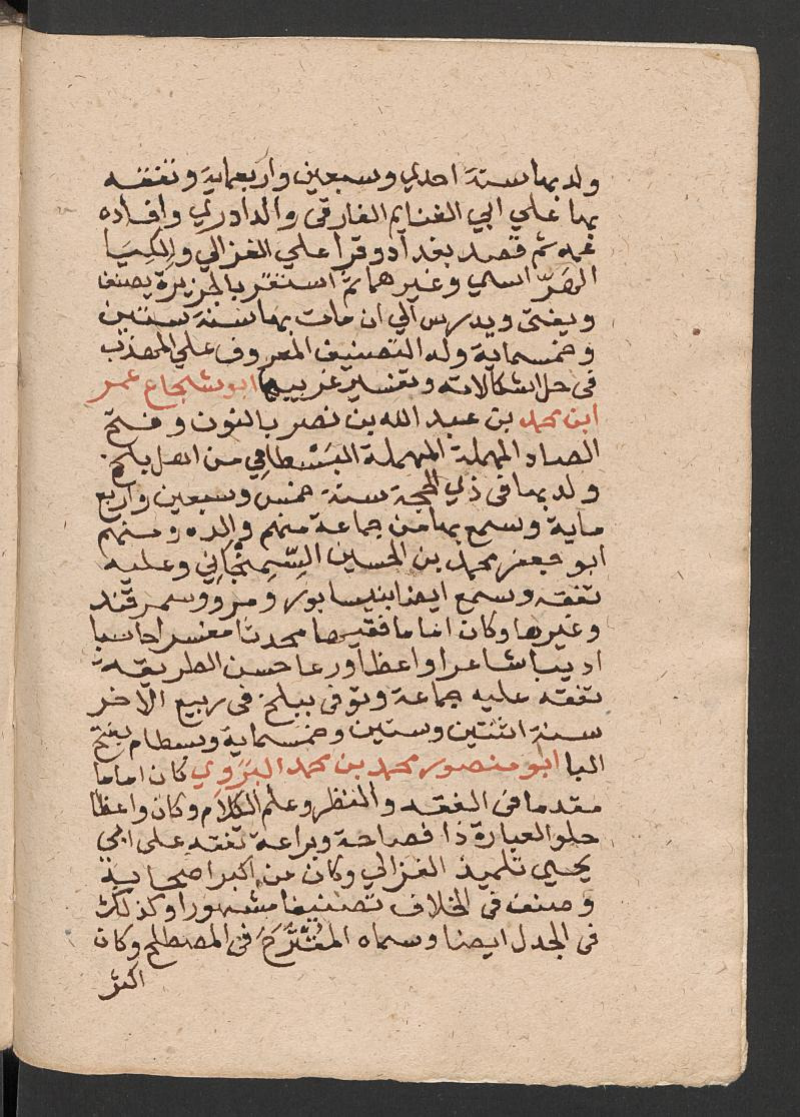 ولد بها سنة احدي وسبعين واربعماية وتفقه
بها علي ابي الغنايم الفارقى والداوردي وافاده
عمه ثم قصد بغداد وقرا علي الغزالي والكيا
الهرّاسي وغيرهما ثم استقر بالجزيرة يصنف
ويفتى ويدرس الي ان مات بها سنة ستين
وخمسماية وله التصنيف المعروف علي المهذب
فى حل اشكالاته وتفسير غريبها ابو شجاع عمر
ابن محمد بن عبد الله بن نصر بالنون وفتح
الصاد المهملة المهملة البَسْطامِي من اهل بلخ
ولد بها فى ذي الحجة سنة خمس وسبعين واربع
ماية وسمع بها من جماعة منهم والده ومنهم
ابو جعفر محمد بن الحسين السِّمِنْجَانِي وعليه
تفقه وسمع ايضا بنيسابور ومرو وسمرقند
وغيرها وكان اماما فقيها محدثا مفسرا حاسبا
اديبا شاعرا واعظا ورعا حسن الطريقة
تفقه عليه جماعة وتوفى ببلخ فى ربيع الاخر
سنة اثنتين وستين وخمسماية وبسطام بفتح
البا ابو منصور محمد بن محمد البَرَوِي كان اماما
مقدما فى الفقه والنظر وعلم الكلام وكان واعظا
حلو العبارة ذا فصاحة وبراعة تفقه على ابي
يحيي تلميذ الغزالي وكان من اكبر اصحابه
وصنف فى الخلاف تصنيفا مشهورا وكذلك
فى الجدل ايضا وسماه المُقْتَرَحَ فى المصطلح وكان
اكثر